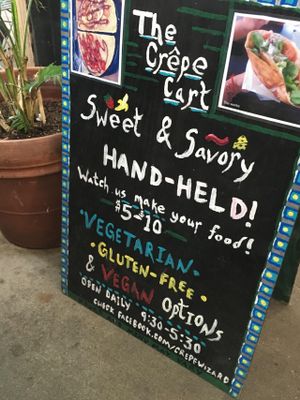 The
Crêpe
Cart
Sweet & Savory
HAND-HELD!
Watch us make your food!
$5-10
•VEGETARIAN•
•GLUTEN-FREE•
& VEGAN OPTIONS
OPEN DAILY 9:30-5:30
CHECK FACEBOOK.COM/CREPEWIZARD